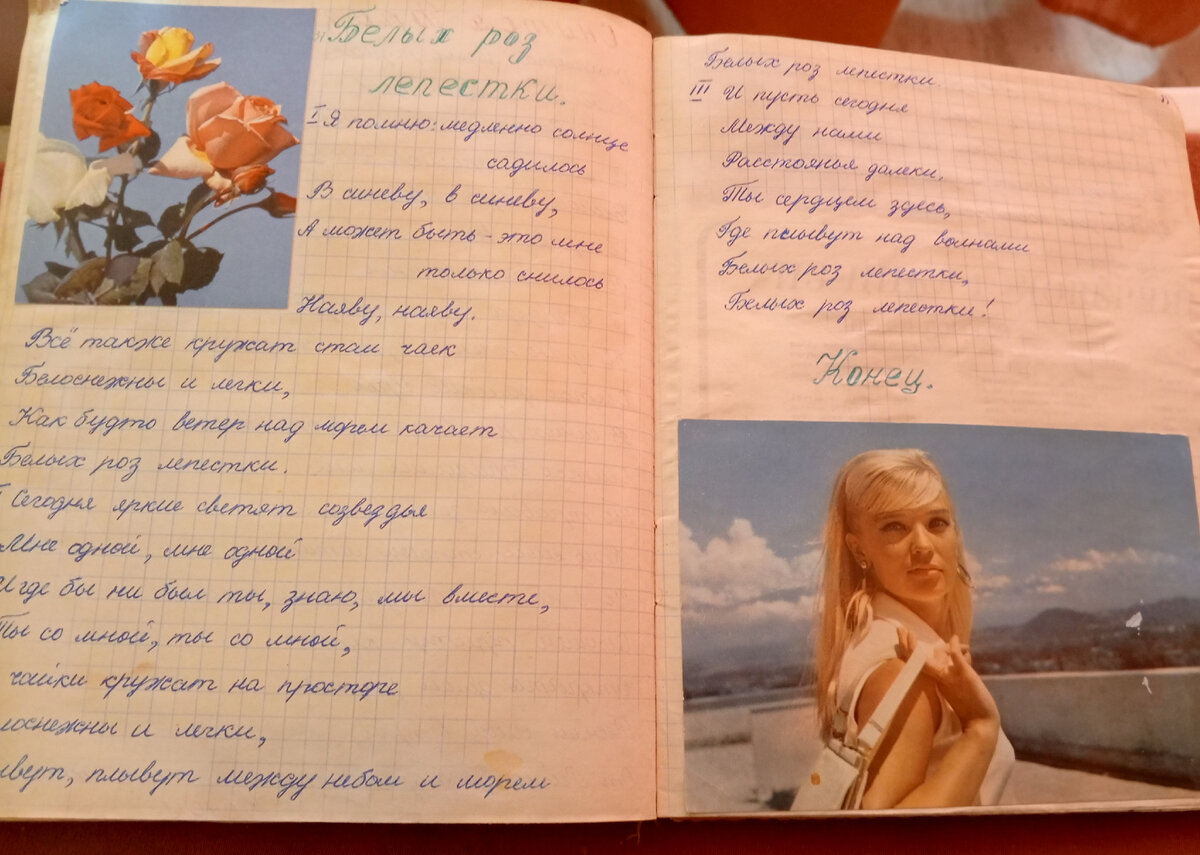 Белых роз
лепестки.
I Я помню: медленно солнце
садилось
В синеву, в синеву,
А может быть - это мне
только снилось
Наяву, наяву.
Всё также кружат стаи чаек
Белоснежны и легки,
Как будто ветер над морем качает
Белых роз лепестки.
Сегодня яркие светят созвездья
Мне одной, мне одной
И где бы ни был ты, знаю, мы вместе,
Ты со мной, ты со мной,
чайки кружат на просторе
и легки,
плывут между небом и морем
Белых роз лепестки.
III И пусть сегодня
Между нами
Расстоянья далеки,
Ты сердцем здесь,
Где плывут над волнами
Белых роз лепестки,
Белых роз лепестки!
Конец.